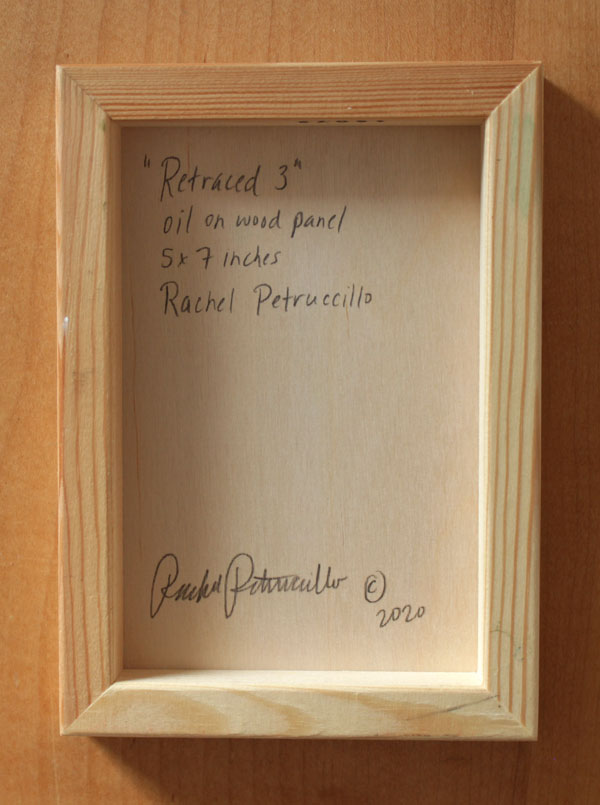 "Retraced 3"
oil on wood panel
5x7 inches
Rachel Petruccillo
Rachel Petruccillo ©
2020